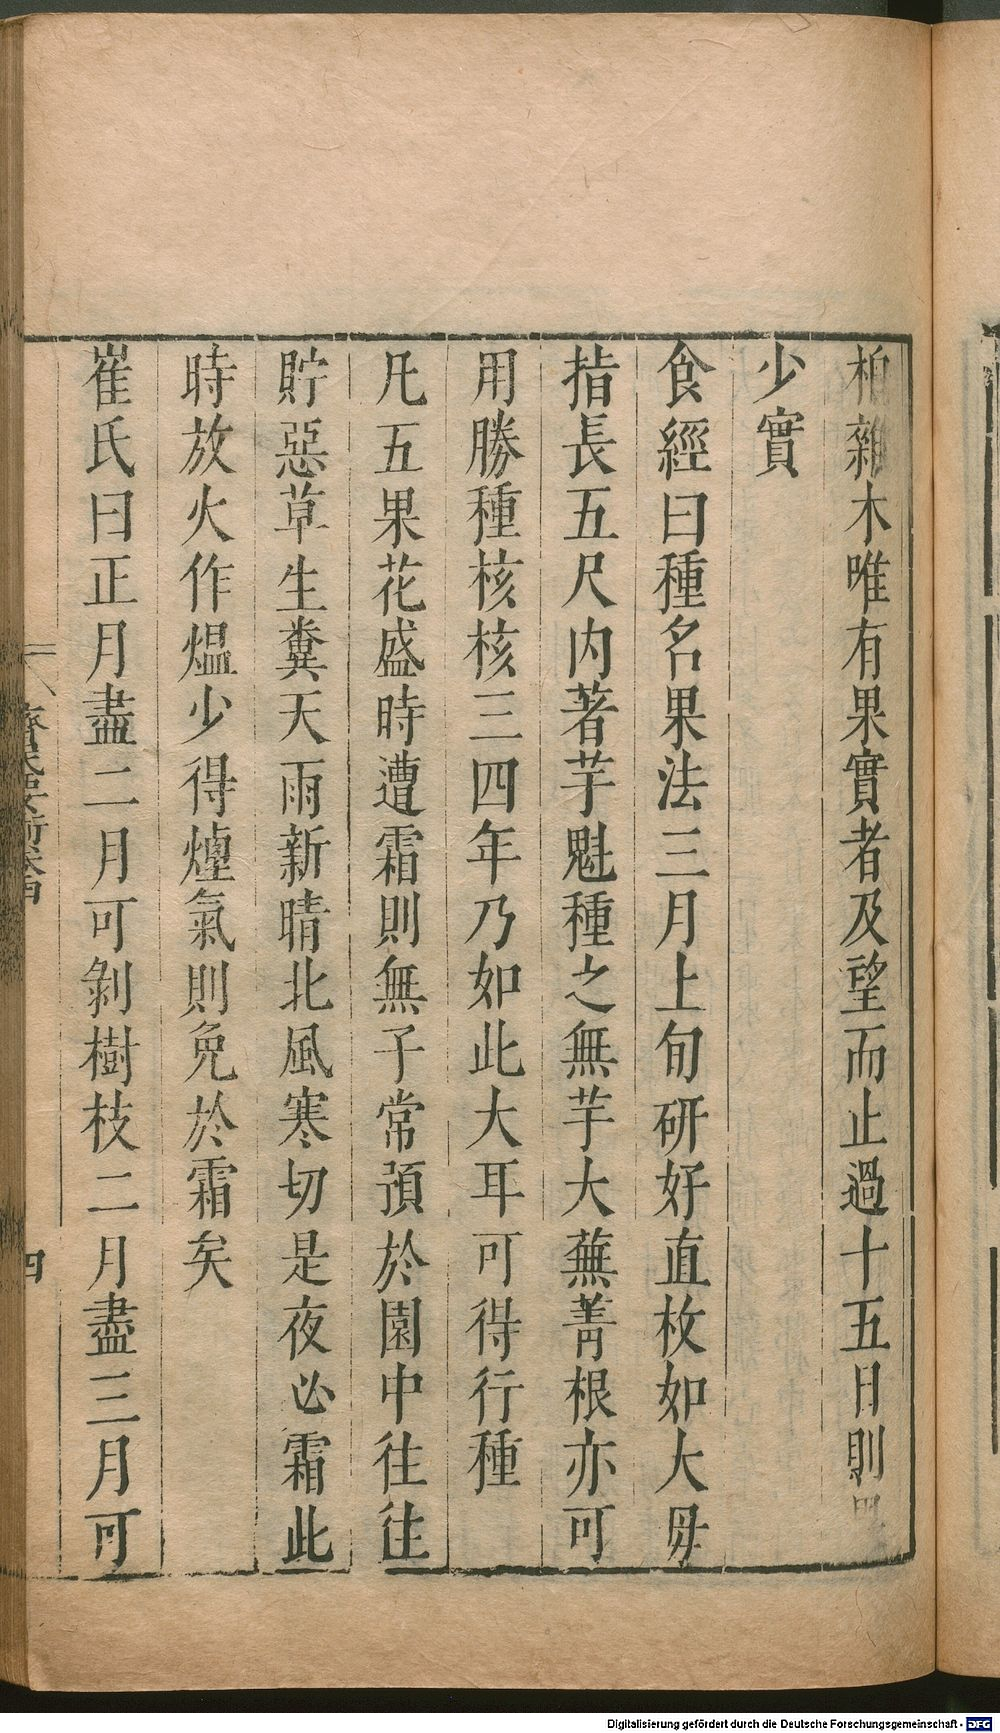 柏雜木唯有果實者及望而止過十五日則果
少實
食經曰種名果法三月上旬研好直枚如大毋
指長五尺内著芋魁種之無芋大蕪菁根亦可
用勝種核核三四年乃如此大耳可得行種
凡五果花盛時遭霜則無子常預於園中往往
貯惡草生糞天雨新晴北風寒切是夜必霜此
時放火作煴少得煙氣則免於霜矣
崔氏曰正月盡二月可剝樹枝二月盡三月可
齊民要術卷四
四
Digitalisierung gefördert durch die Deutsche Forschungsgemeinschaft - DFG